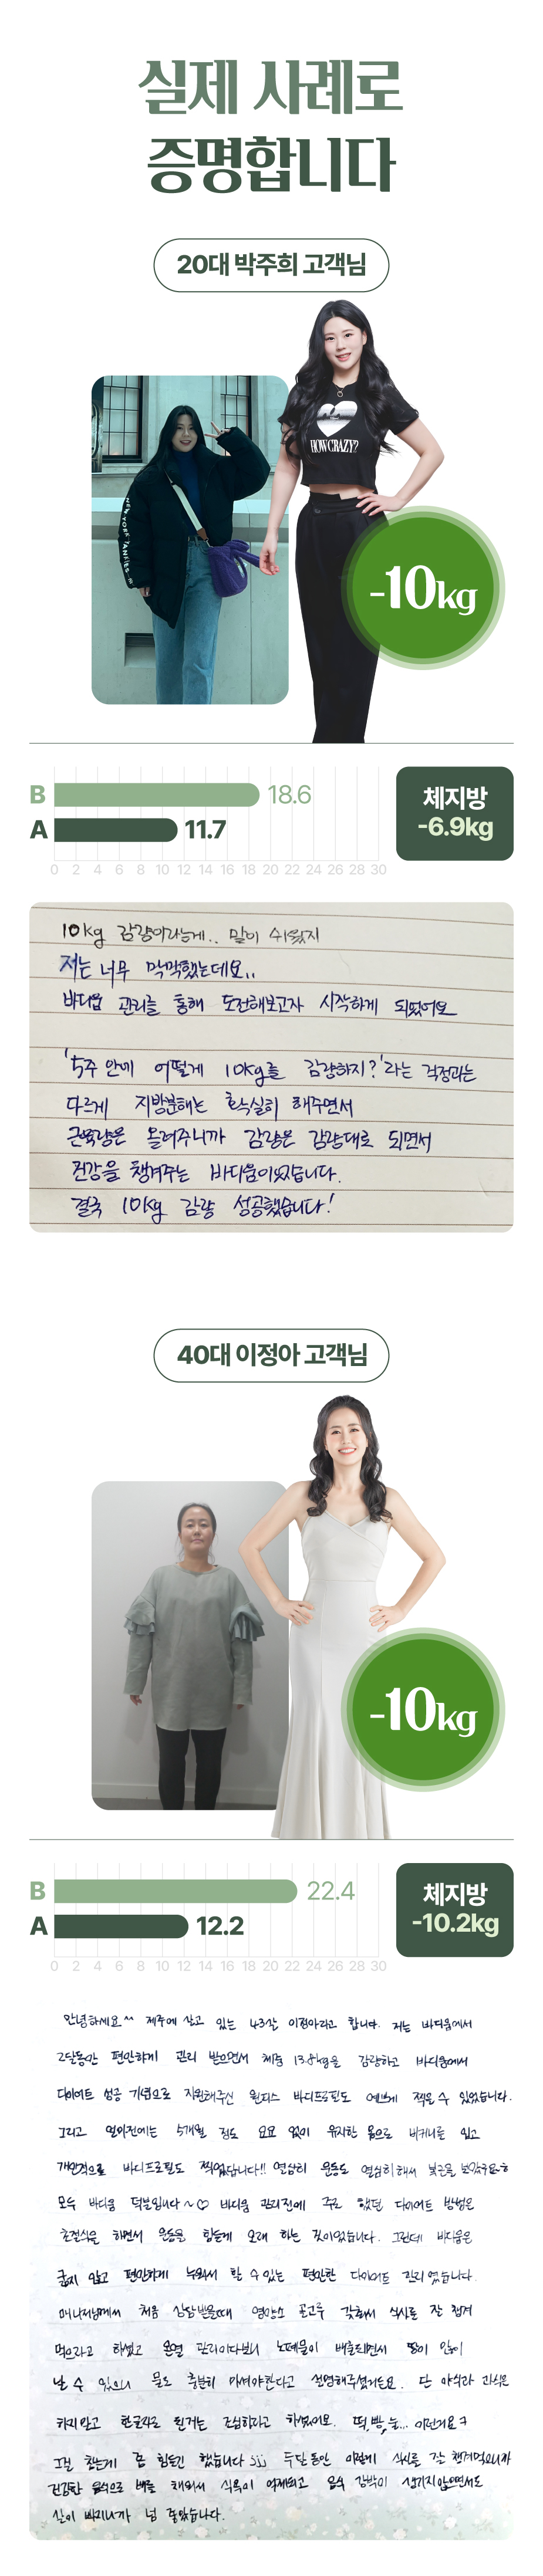 실제 사례로
증명합니다
20대 박주희 고객님
NEW YORK YANKEES
HOW CRAZY?
-10kg
B 18.6
A 11.7
0 2 4 6 8 10 12 14 16 18 20 22 24 26 28 30
체지방
-6.9kg
10kg 감량이라는게.. 말이 쉬웠지
저는 너무 막막했는데요..
바디움 관리를 통해 도전해보고자 시작하게 되었어요
'5주 안에 어떻게 10kg를 감량하지?'라는 걱정과는
다르게 지방분해는 확실히 해주면서
근육량은 늘려주니까 감량은 감량대로 되면서
건강을 챙겨주는 바디움이었습니다.
결국 10kg 감량 성공했습니다!
40대 이정아 고객님
-10kg
B 22.4
A 12.2
0 2 4 6 8 10 12 14 16 18 20 22 24 26 28 30
체지방
-10.2kg
안녕하세요^^ 제주에 살고 있는 43살 이정아라고 합니다. 저는 바디움에서
2달동안 편안하게 관리 받으면서 체중 13.8kg을 감량하고 바디움에서
다이어트 성공 기념으로 지원해주신 원피스 바디프로필도 예쁘게 찍을 수 있었습니다.
그리고 얼마전에는 5개월 정도 요요 없이 유지한 몸으로 비키니를 입고
개인적으로 바디프로필도 찍었답니다!! 열심히 운동도 열심히 해서
모두 바디움 덕분입니다~♡ 바디움 관리전에 주로 했던 다이어트 방법은
초절식을 하면서 운동을 힘들게 오래 하는 것이었습니다. 그런데 바디움은
굶지 않고 편안하게 누워서 할 수 있는 편안한 다이어트 관리였습니다.
매니저님께서 처음 상담받을때 영양소 골고루 갖춰서 식사를 잘 챙겨
먹으라고 하셨고 온열 관리이다보니 노폐물이 배출되면서 땀이 많이
날 수 있으니 물도 충분히 마셔야한다고 설명해주셨거든요. 단 야식과 과식은
하지말고 한글자로 된거는 조심하라고 하셨어요. 떡, 빵, 술... 이런거요ㅋ
그런 참는게 좀 힘들긴 했습니다 두달동안 이렇게 식사를 잘 챙겨먹으니까
건강한 음식으로 배를 채워서 식욕이 억제되고 음식 강박이 생기지않으면서도
살이 빠지니까 넘 좋았습니다.